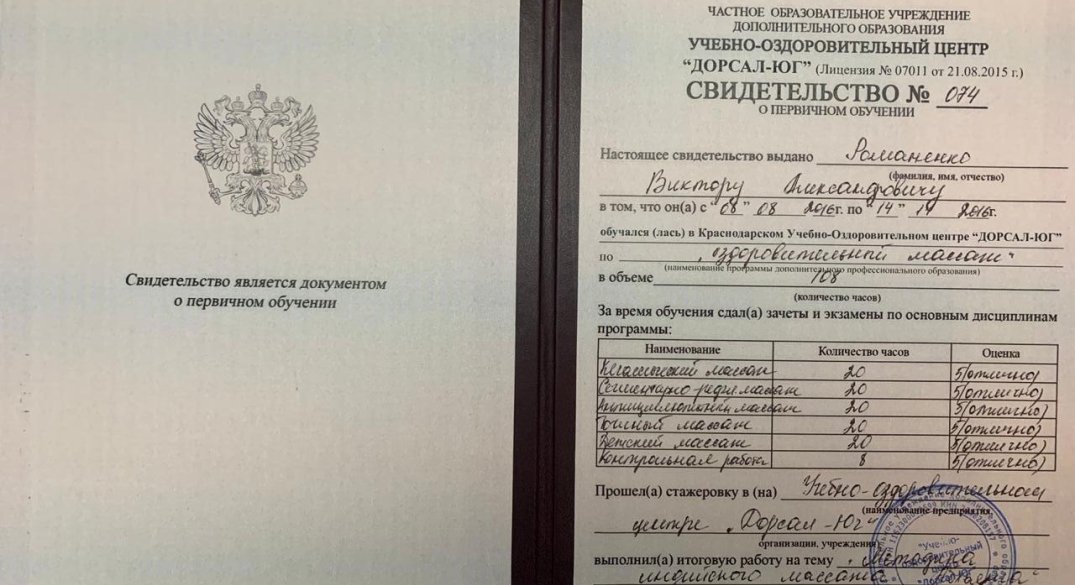 Свидетельство является документом
о первичном обучении
ЧАСТНОЕ ОБРАЗОВАТЕЛЬНОЕ УЧРЕЖДЕНИЕ
ДОПОЛНИТЕЛЬНОГО ОБРАЗОВАНИЯ
УЧЕБНО-ОЗДОРОВИТЕЛЬНЫЙ ЦЕНТР
"ДОРСАЛ-ЮГ" (Лицензия № 07011 от 21.08.2015 г.)
СВИДЕТЕЛЬСТВО № 074
О ПЕРВИЧНОМ ОБУЧЕНИИ
Настоящее свидетельство выдано Романенко
(фамилия, имя, отчество)
Виктору Александровичу
в том, что он(а) с "08" 08 2016г. по "14" 14 2016г.
обучался (лась) в Краснодарском Учебно-Оздоровительном центре "ДОРСАЛ-ЮГ"
по "оздоровительный массаж"
(наименование программы дополнительного профессионального образования)
в объеме 108
(количество часов)
За время обучения сдал(а) зачеты и экзамены по основным дисциплинам
программы:
Наименование Количество часов Оценка
Классический массаж 20 5(отлично)
массаж 20 5(отлично)
массаж 20 5(отлично)
Точечный массаж 20 5(отлично)
Детский массаж 20 5(отлично)
Контрольная работа 8 5(отлично)
Прошел(а) стажировку в (на) Учебно-оздоровительном
(наименование предприятия,
центре "Дорсал-Юг"
организации, учреждения)
выполнил(а) итоговую работу на тему "Методика
индийского массажа